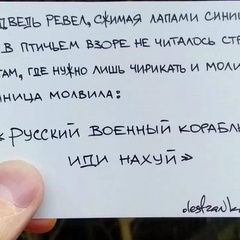 ДВЕДЬ РЕВЕЛ, СЖИМАЯ ЛАПАМИ СИНИЦ
В ПТИЧЬЕМ ВЗОРЕ НЕ ЧИТАЛОСЬ СТР
ТАМ, ГДЕ НУЖНО ЛИШЬ ЧИРИКАТЬ И МОЛИ
НИЦА МОЛВИЛА:
«РУССКИЙ ВОЕННЫЙ КОРАБЛ
ИДИ НАХУЙ»